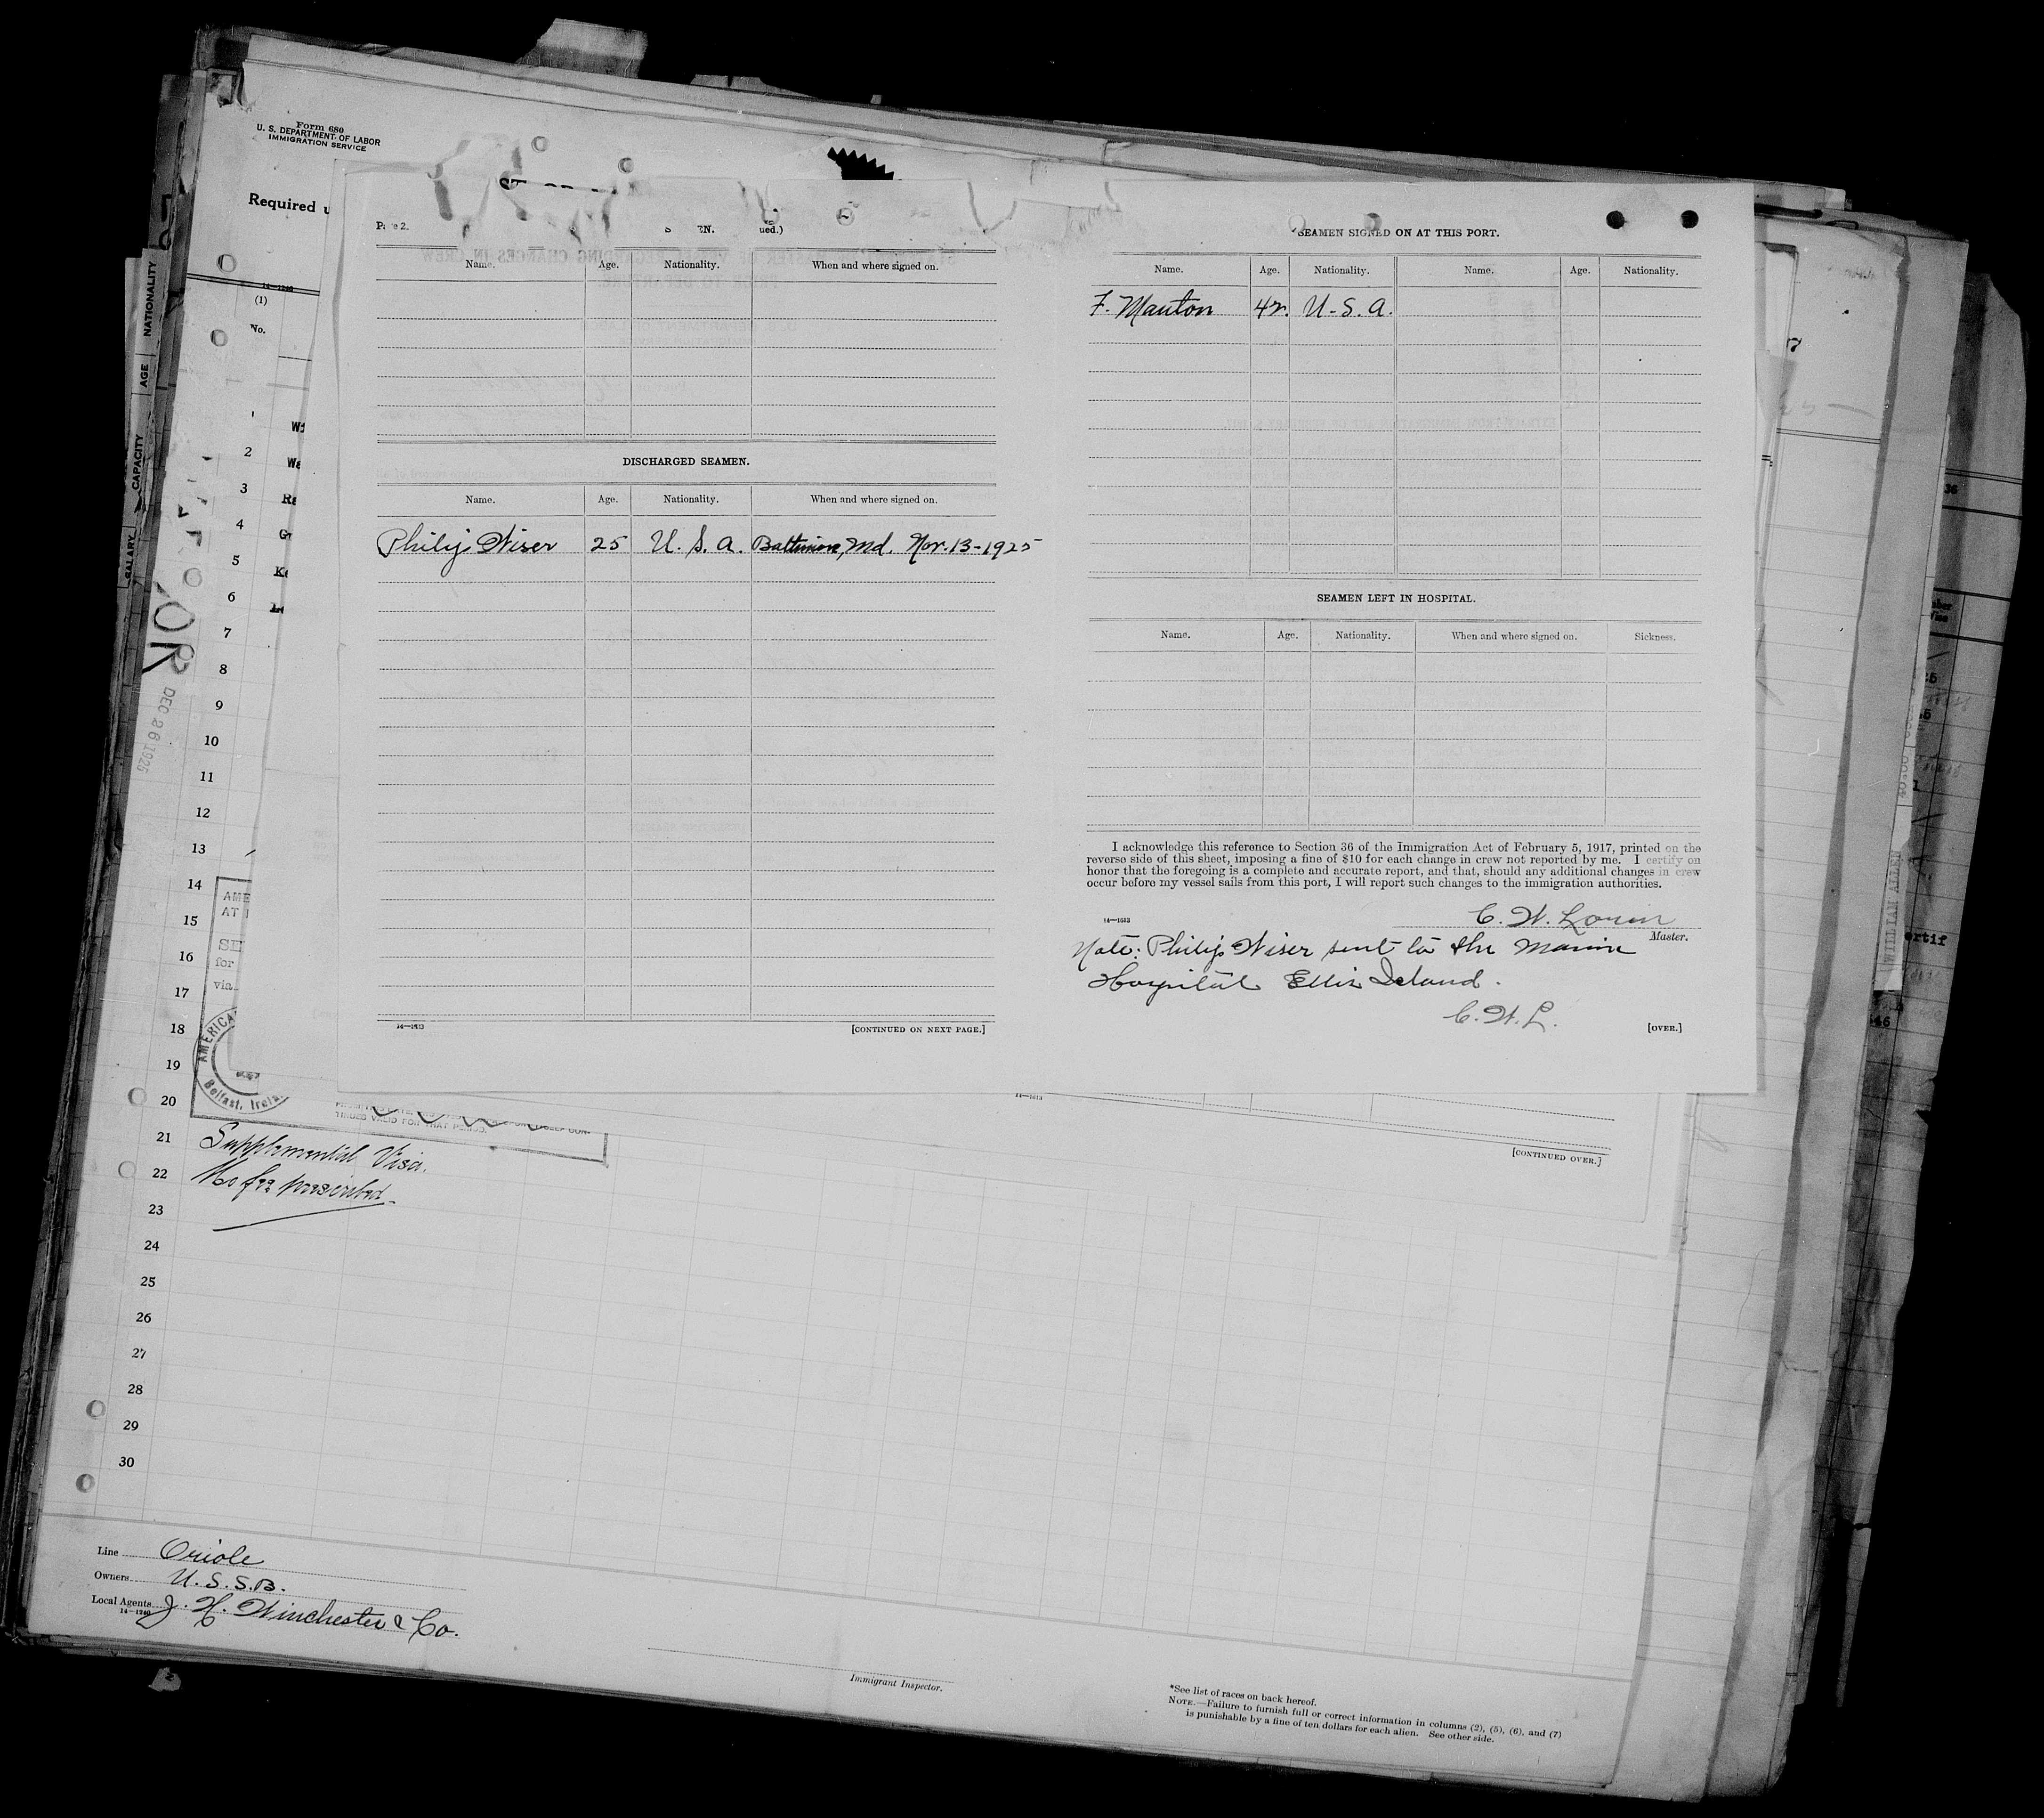 Form 680
U. S. DEPARTMENT OF LABOR
IMMIGRATION SERVICE
Required u
14—1240
(1)
No.
NATIONALITY
AGE
CAPACITY
SALARY
DEC 26 1925
1
2
3
4
5
6
7
8
9
10
11
12
13
14
15
16
17
18
19
20
21
22
23
24
25
26
27
28
29
30
AME
AT
for
via
AMERICA
Belfast, Irela
TINUED VALID FOR THAT PERIOD.
Supplemental Visa.
No fee prescribed
Page 2.
EN.
ued.)
Name. Age. Nationality. When and where signed on.
DISCHARGED SEAMEN.
Name. Age. Nationality. When and where signed on.
Philip Wiser 25 U. S. A. Baltimore, Md. Nov. 13-1925
14—1613
[CONTINUED ON NEXT PAGE.]
SEAMEN SIGNED ON AT THIS PORT.
Name. Age. Nationality. Name. Age. Nationality.
F. Manton 42. U.S.A.
SEAMEN LEFT IN HOSPITAL.
Name. Age. Nationality. When and where signed on. Sickness.
I acknowledge this reference to Section 36 of the Immigration Act of February 5, 1917, printed on the
reverse side of this sheet, imposing a fine of $10 for each change in crew not reported by me. I certify on
honor that the foregoing is a complete and accurate report, and that, should any additional changes in crew
occur before my vessel sails from this port, I will report such changes to the immigration authorities.
14—1613
C. W.
Master.
Note: Philip Wiser sent to the Marine
Hospital Ellis Island.
C. W. L.
[OVER.]
14—1613
[CONTINUED OVER.]
WILLIAM ALLEN
36
ertif
Line Oriole
Owners U.S.S.B.
Local Agents J. H. Winchester & Co.
14—1240
Immigrant Inspector.
*See list of races on back hereof.
NOTE.—Failure to furnish full or correct information in columns (2), (5), (6), and (7)
is punishable by a fine of ten dollars for each alien. See other side.